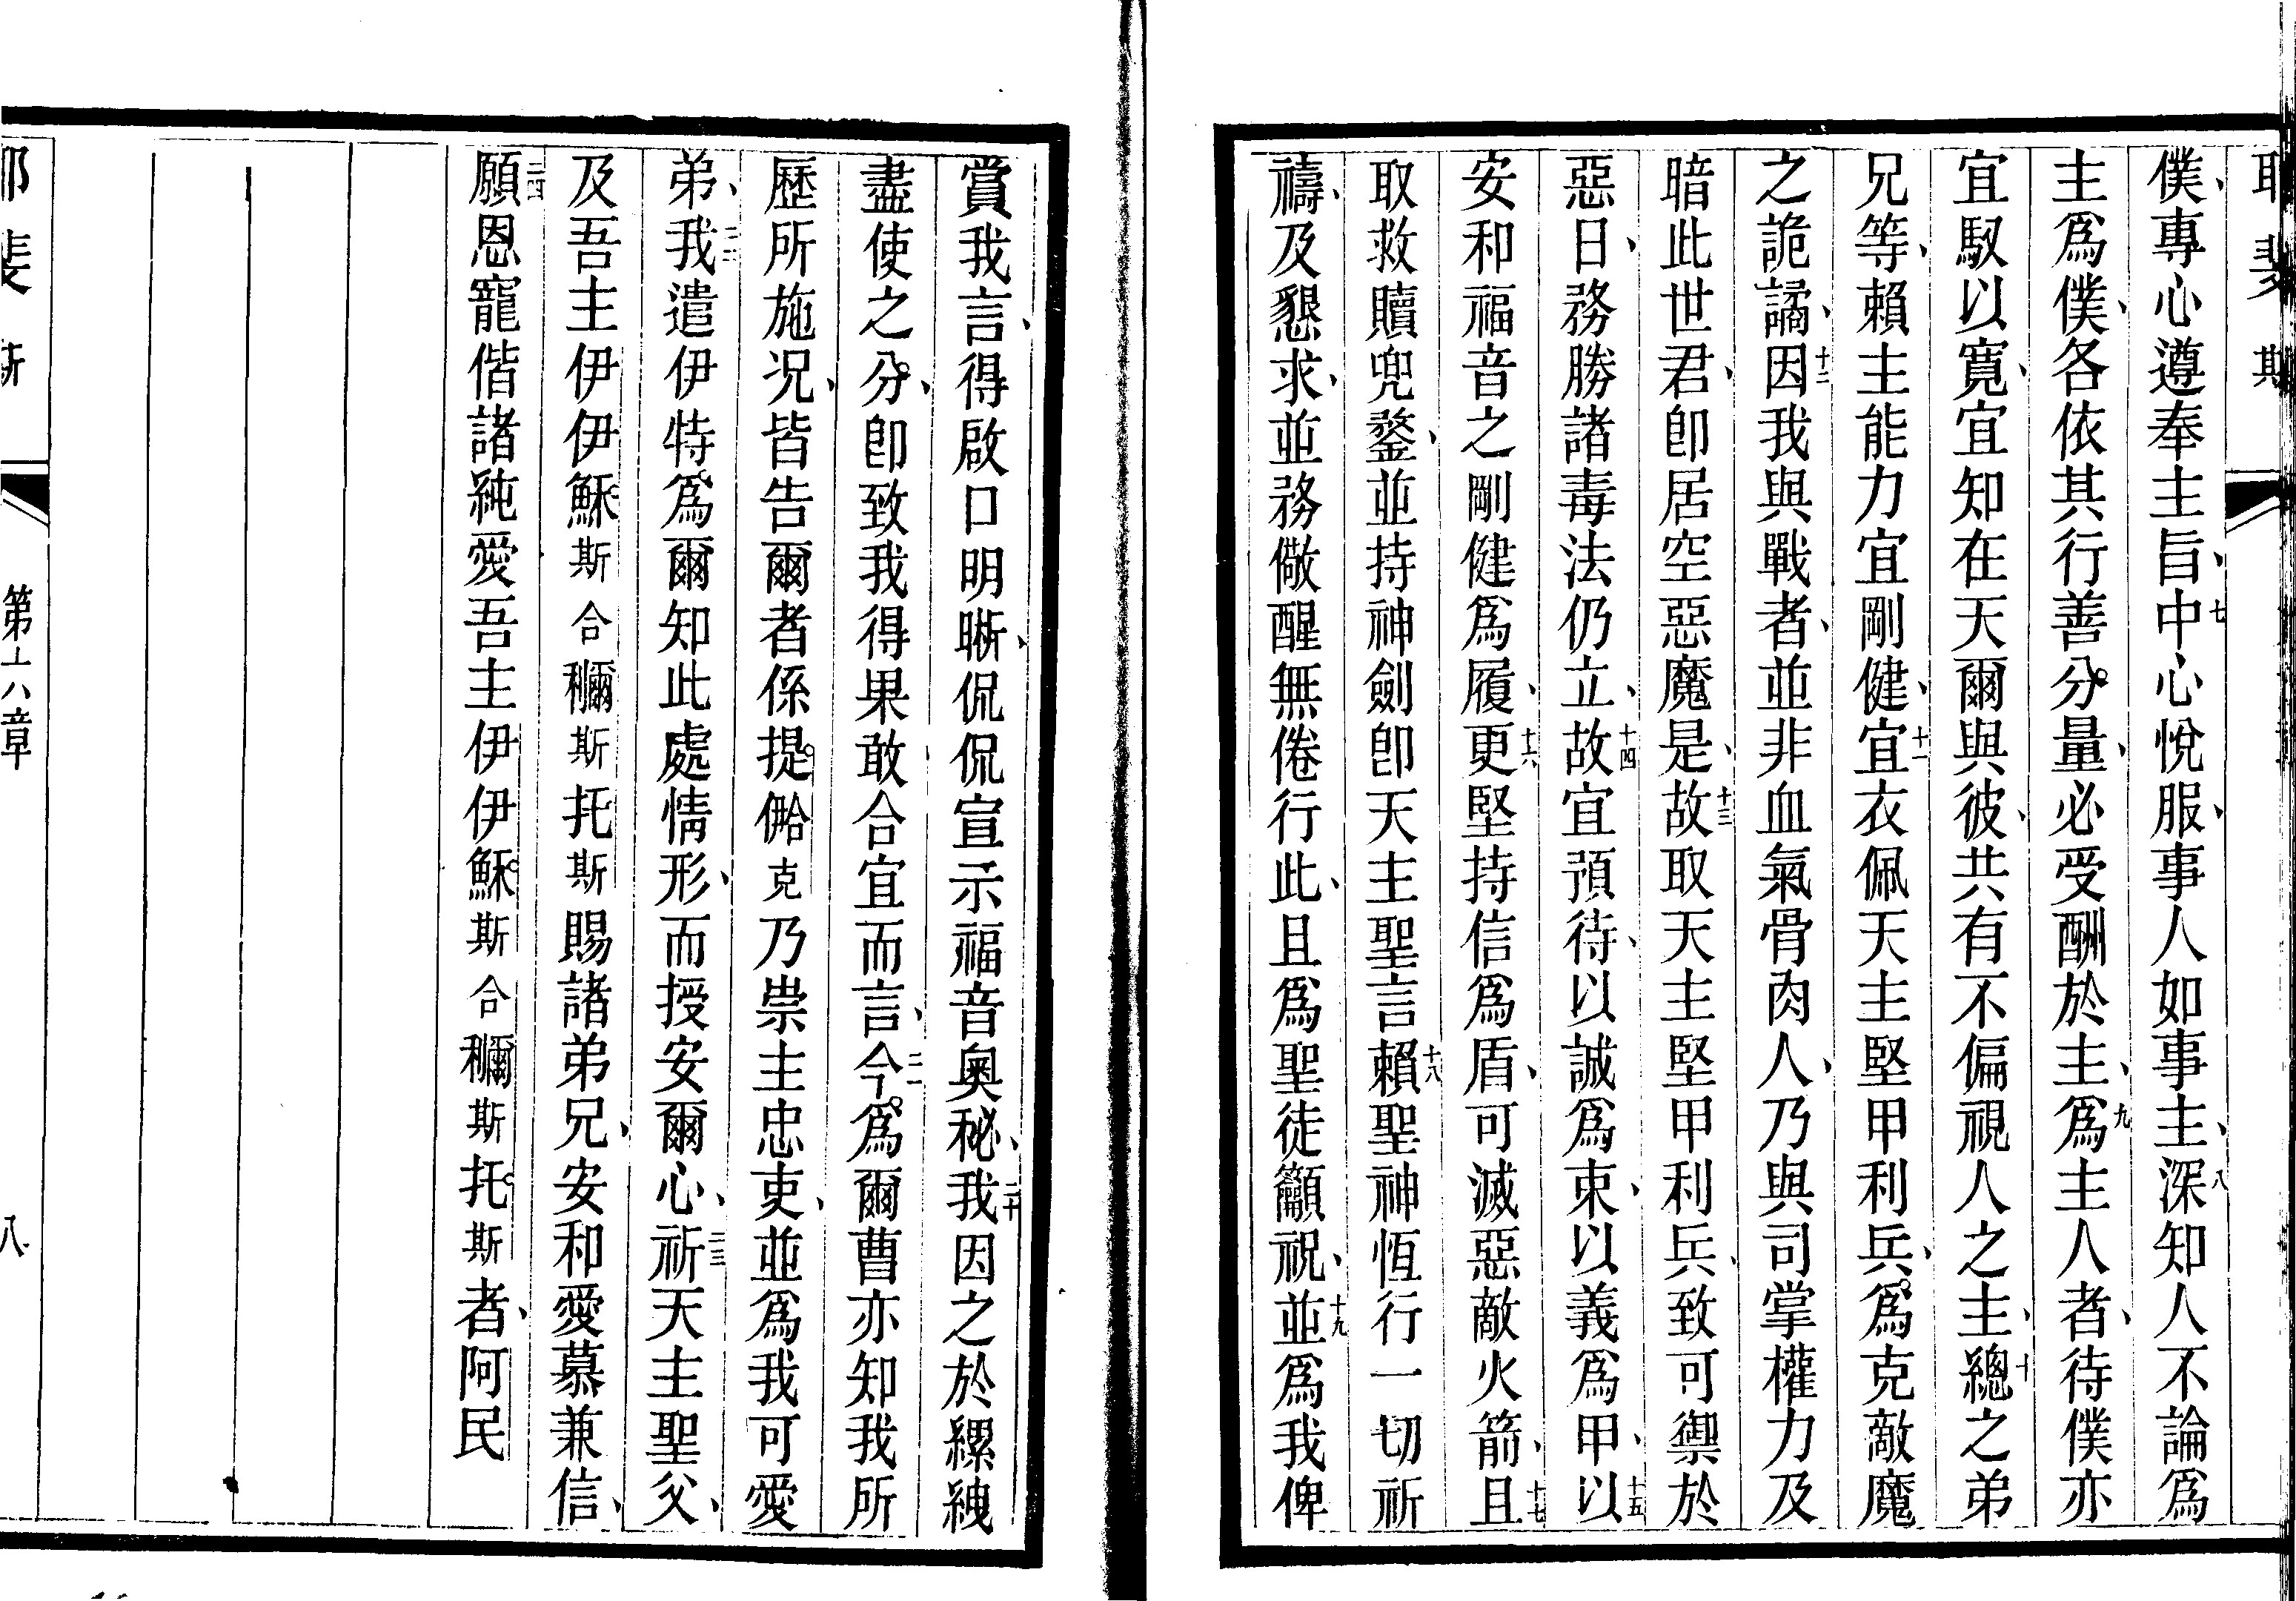 耶斐斯
僕、專心遵奉主旨、七中心悅服、事人如事主、八深知人不論爲
主爲僕、各依其行善分量、必受酬於主、九爲主人者、待僕亦
宜馭以寬、宜知在天爾與彼、共有不偏視人之主、十總之弟
兄等、賴主能力宜剛健、十一宜衣佩天主堅甲利兵、爲克敵魔
之詭譎、十二因我與戰者、並非血氣骨肉人、乃與司掌權力及
暗此世君、卽居空惡魔是、十三故取天主堅甲利兵、致可禦於
惡日、務勝諸毒法仍立、十四故宜預待、以誠爲束、以義爲甲、十五以
安和福音之剛健爲履、十六更堅持信爲盾、可滅惡敵火箭、十七且
取救贖兜鍪、並持神劍卽天主聖言、十八賴聖神恆行一切祈
禱、及懇求、並務儆醒無倦行此、且爲聖徒籲祝、十九並爲我俾
賞我言、得啟口明晣、侃侃宣示福音奧秘、二十我因之於縲絏
盡使之分、卽致我得果敢合宜而言、二一今爲爾曹亦知我所
歷所施况、皆告爾者係提𠎀克乃崇主忠吏、並爲我可愛
弟、二二我遣伊特爲爾知此處情形、而授安爾心、二三祈天主聖父、
及吾主伊伊穌斯合穪斯托斯賜諸弟兄、安和愛慕兼信、
二四願恩寵偕諸純愛吾主伊伊穌斯合穪斯托斯者、阿民
耶斐斯
第六章
八